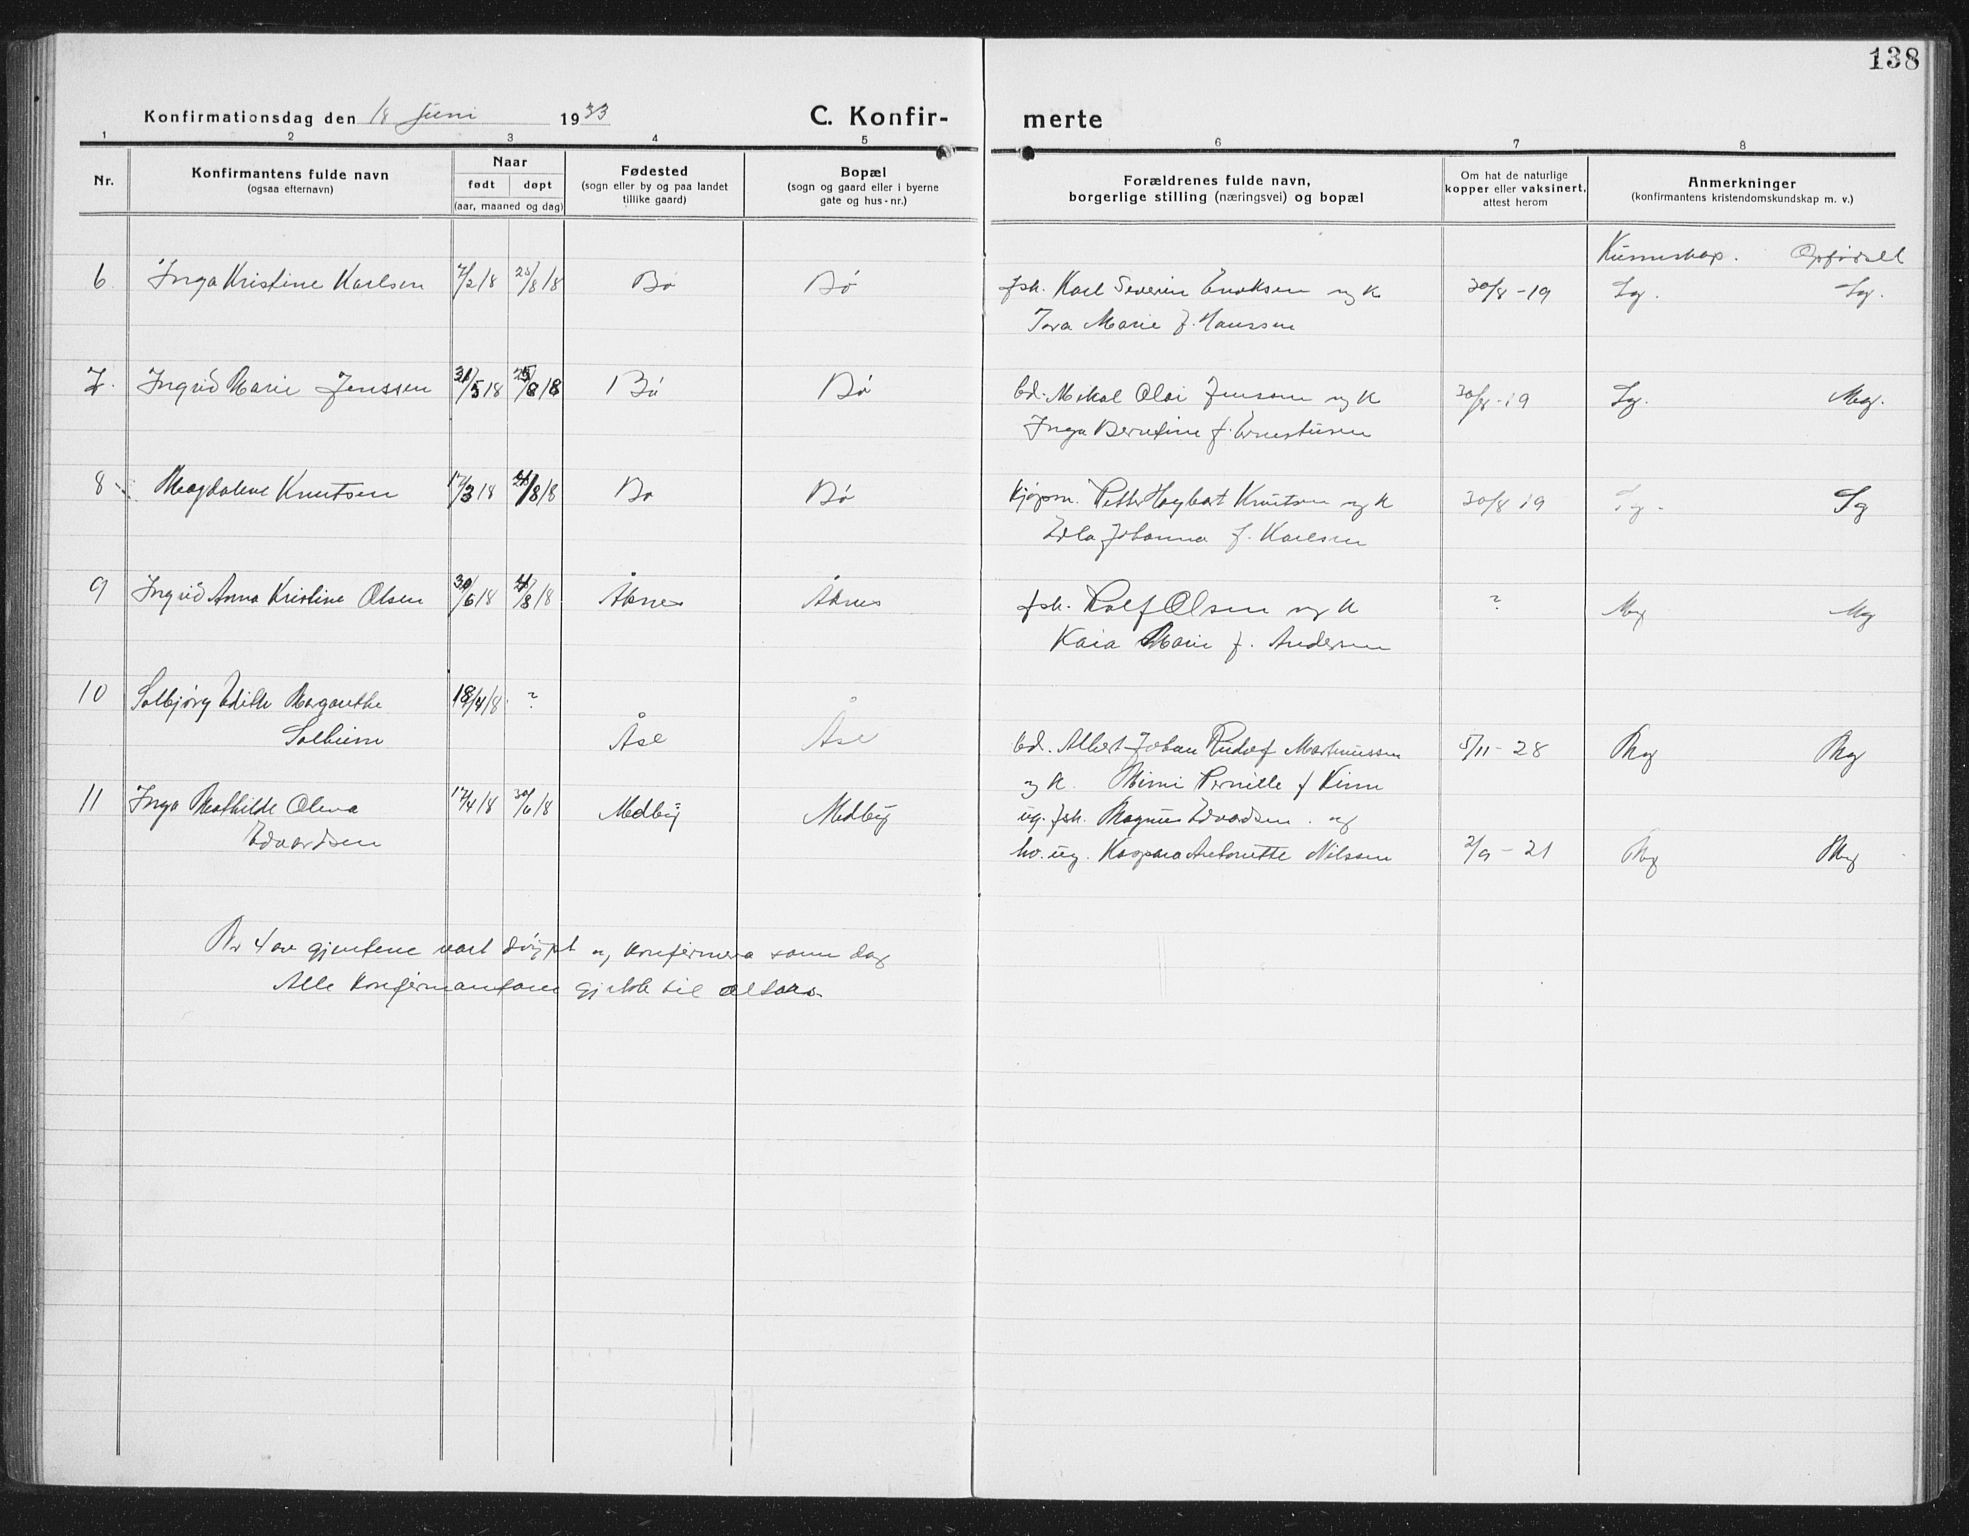 138
Konfirmationsdag den 18 Juni 1933
C. Konfir-
merte
1 2 3 4 5 6 7 8
Nr.
Konfirmantens fulde navn
(ogsaa efternavn)
Naar
født døpt
(aar, maaned og dag)
Fødested
(sogn eller by og paa landet
tillike gaard)
Bopæl
(sogn og gaard eller i byerne
gate og hus-nr.)
Forældrenes fulde navn,
borgerlige stilling (næringsvei) og bopæl
Om hat de naturlige
kopper eller vaksinert,
attest herom
Anmerkninger
(konfirmantens kristendomskundskap m. v.)
Kunnskap. Opførsel
6 Inga Kristine Karlsen 7/2 18 25/8 18 Bø Bø fsk. Karl Severin Eriksen og k 30/8-19 Sg. Sg.
Tora Marie f. Hanssen
7. Ingrid Marie Jenssen 31/5 18 25/8 18 Bø Bø Mikal Olai Jenssen og k 30/8-19 Sg. Meg.
Inga Berntine f. Ernestusen
8 Magdalene Knutsen 17/3 18 /8 18 Bø Bø kjøpm. Petter Hagbart Knutsen og k 30/8 19 Sg. Sg
Johanna f. Karlsen
9 Ingrid Anna Kristine Olsen 30/6 18 /8 18 Åknes Åknes fsk. Rolf Olsen og k ? Mg Mg
Kaia Marie f. Andersen
10 Solbjørg Edith Margarethe 18/4 18 ?
Åse Åse Albert Johan Rudolf Martinussen 5/11-28 Mg Mg
og k. Mimi Pernille f Kinn
11 Inga Mathilde Olena 17/4 18 30/6 18 Medby Medby ug. fsk. Magnus Edvardsen. og
Edvardsen ho. ug. Kaspara Antonette Nilssen 2/9-21 Mg Mg
Nr 4 av gjentene vart døypt og konfirmera same dag
Alle konfirmantane gjekk til altars